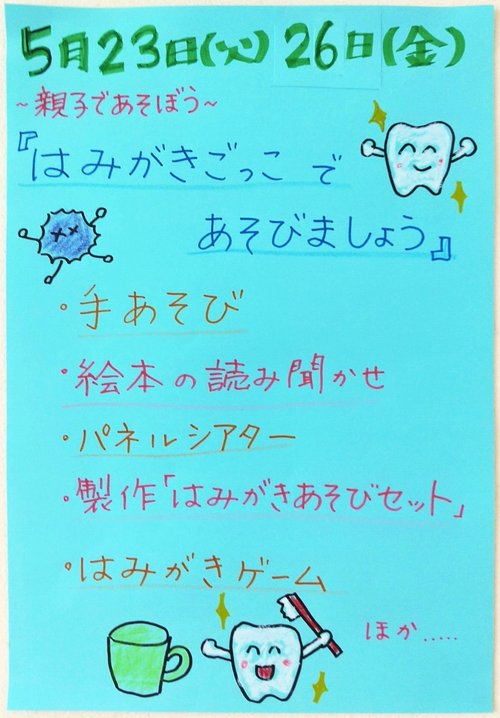 5月23日(火) 26日(金)
~親子であそぼう~
『はみがきごっこで
あそびましょう』
・手あそび
・絵本の読み聞かせ
・パネルシアター
・製作「はみがきあそびセット」
・はみがきゲーム
ほか.....